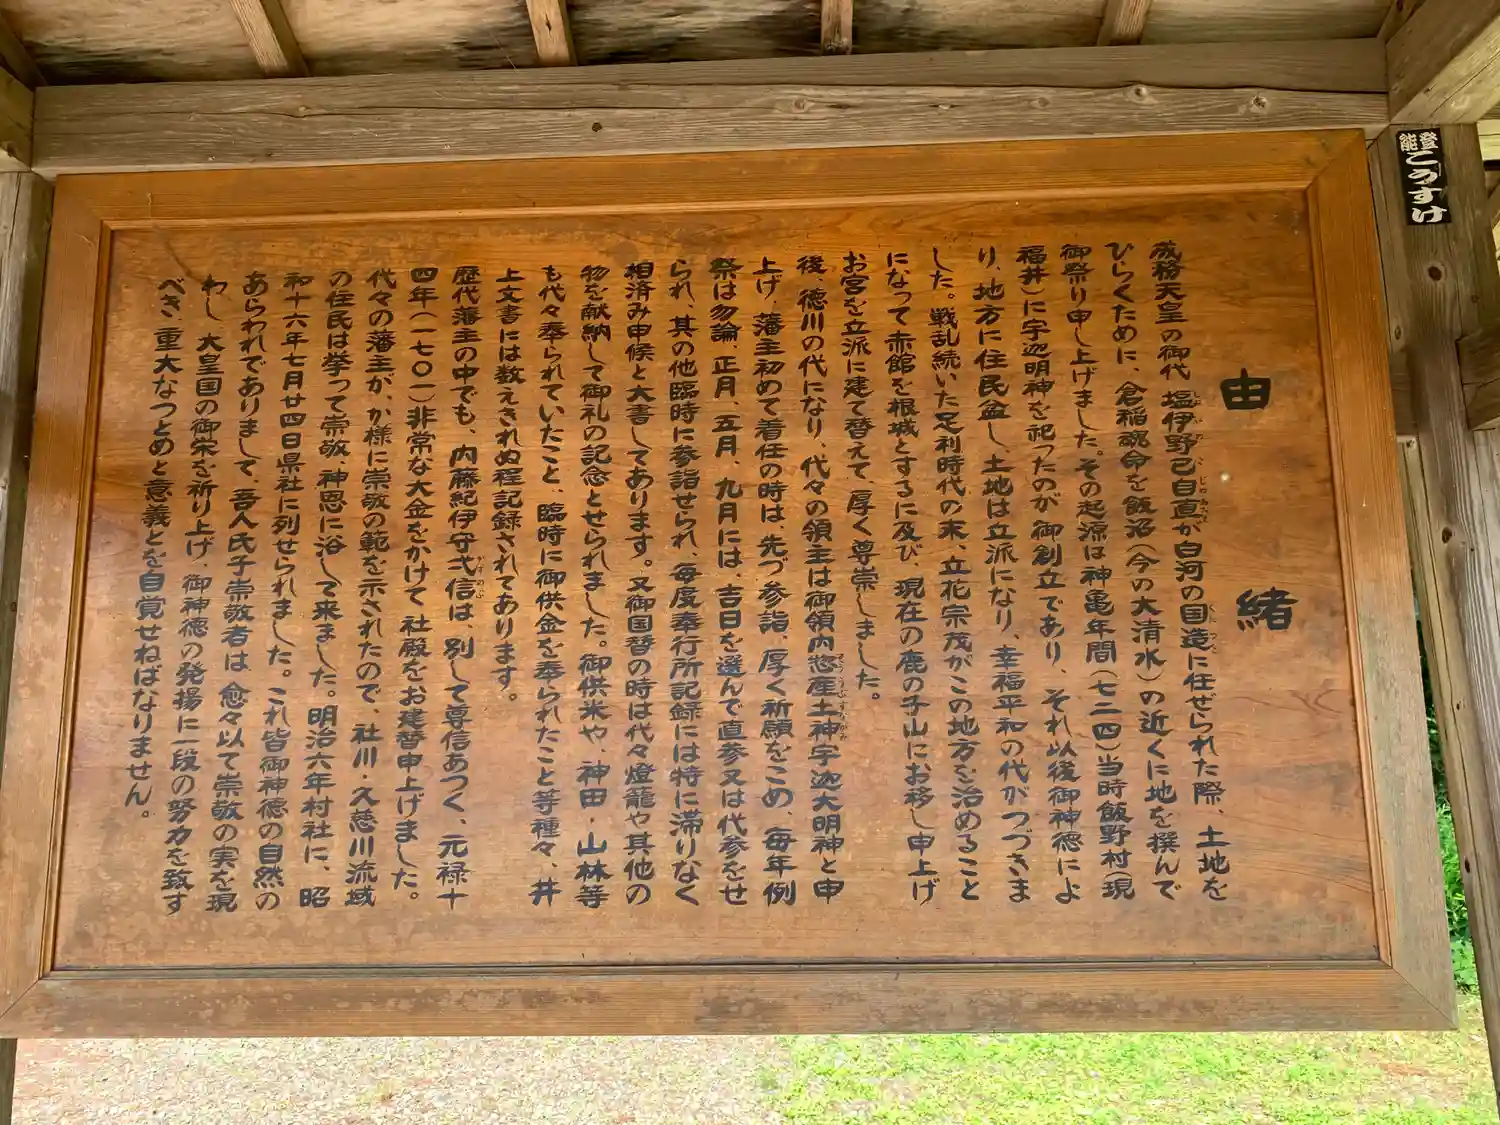 由緒
成務天皇の御代 塩伊野己自直が白河の国造に任ぜられた際、土地を
ひらくために、倉稲魂命を飯沼(今の大清水)の近くに地を撰んで
御祭り申し上げました。その起源は神亀年間(七二四)当時飯野村(現
福井)に宇迦明神を祀ったのが御創立であり、それ以後御神徳によ
り、地方に住民益し、土地は立派になり、幸福平和の代がつづきま
した。戦乱続いた足利時代の末、立花宗茂がこの地方を治めること
になって赤館を根城とするに及び、現在の鹿の子山にお移し申上げ
お宮を立派に建て替えて、厚く尊崇しました。
後 徳川の代になり、代々の領主は御領内惣産土神宇迦大明神と申
上げ、藩主初めて着任の時は、先づ参詣、厚く祈願をこめ、毎年例
祭は勿論、正月、五月、九月には、吉日を選んで直参又は代参をせ
られ、其の他臨時に参詣せられ、毎度奉行所記録には特に滞りなく
相済み申候と大書してあります。又御国替の時は代々燈籠や其他の
物を献納して御礼の記念とせられました。御供米や、神田・山林等
も代々奉られていたこと、臨時に御供金を奉られたこと等種々、井
上文書には数えきれぬ程記録されてあります。
歴代藩主の中でも、内藤紀伊守弌信は 別して専信あつく、元禄十
四年(一七〇一)非常な大金をかけて 社殿をお建替申上げました。
代々の藩主が、か様に崇敬の範を示されたので、社川・久慈川流域
の住民は挙って崇敬、神恩に浴して来ました。明治六年村社に、昭
和十六年七月廿四日県社に列せられました。これ皆御神徳の自然の
あらわれでありまして、吾人氏子崇敬者は 愈々以て崇敬の実を現
わし 大皇国の御栄を祈り上げ、御神徳の発揚に一段の努力を致す
べき 重大なつとめと意義とを自覚せねばなりません。
登能
こうすけ